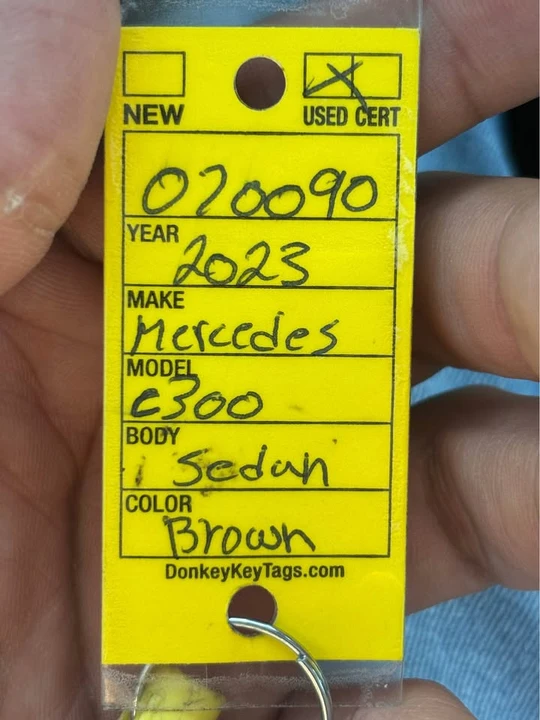 NEW
USED CERT
070090
YEAR
2023
MAKE
Mercedes
MODEL
C300
BODY
Sedan
COLOR
Brown
DonkeyKeyTags.com